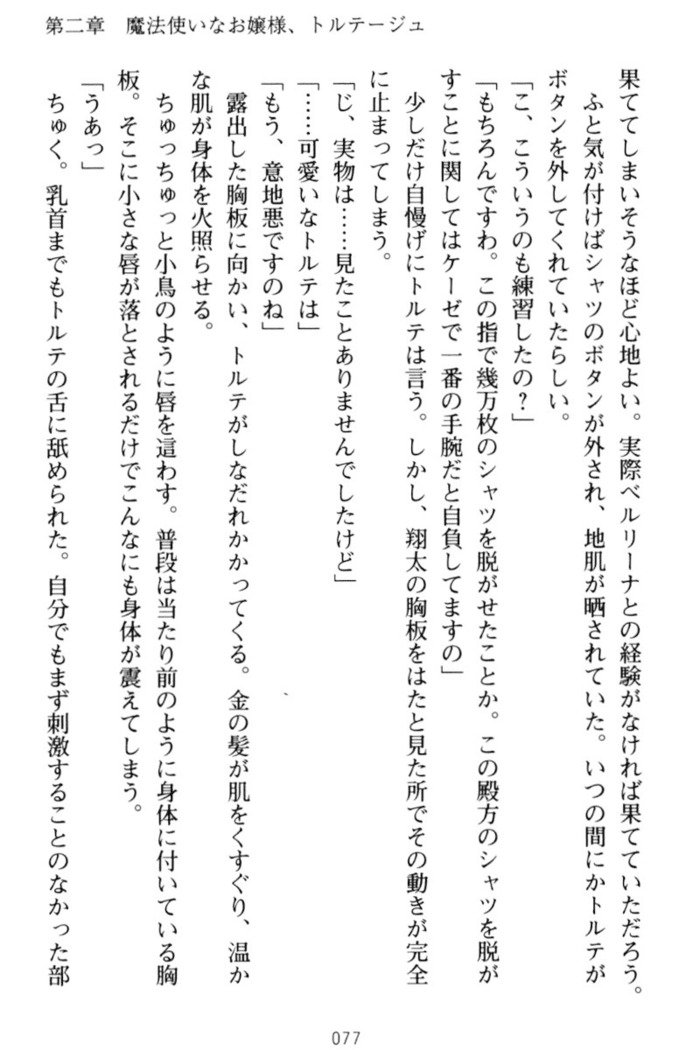 第二章　魔法使いなお嬢様、トルテージュ
果ててしまいそうなほど心地よい。実際ベルリーナとの経験がなければ果てていただろう。
　ふと気が付けばシャツのボタンが外され、地肌が晒されていた。いつの間にかトルテが
ボタンを外してくれていたらしい。
「こ、こういうのも練習したの？」
「もちろんですわ。この指で幾万枚のシャツを脱がせたことか。この殿方のシャツを脱が
すことに関してはケーゼで一番の手腕だと自負してますの」
　少しだけ自慢げにトルテは言う。しかし、翔太の胸板をはたと見た所でその動きが完全
に止まってしまう。
「じ、実物は……見たことありませんでしたけど」
「……可愛いなトルテは」
「もう、意地悪ですのね」
　露出した胸板に向かい、トルテがしなだれかかってくる。金の髪が肌をくすぐり、温か
な肌が身体を火照らせる。
　ちゅっちゅっと小鳥のように唇を這わす。普段は当たり前のように身体に付いている胸
板。そこに小さな唇が落とされるだけでこんなにも身体が震えてしまう。
「うあっ」
　ちゅく。乳首までもトルテの舌に舐められた。自分でもまず刺激することのなかった部
077